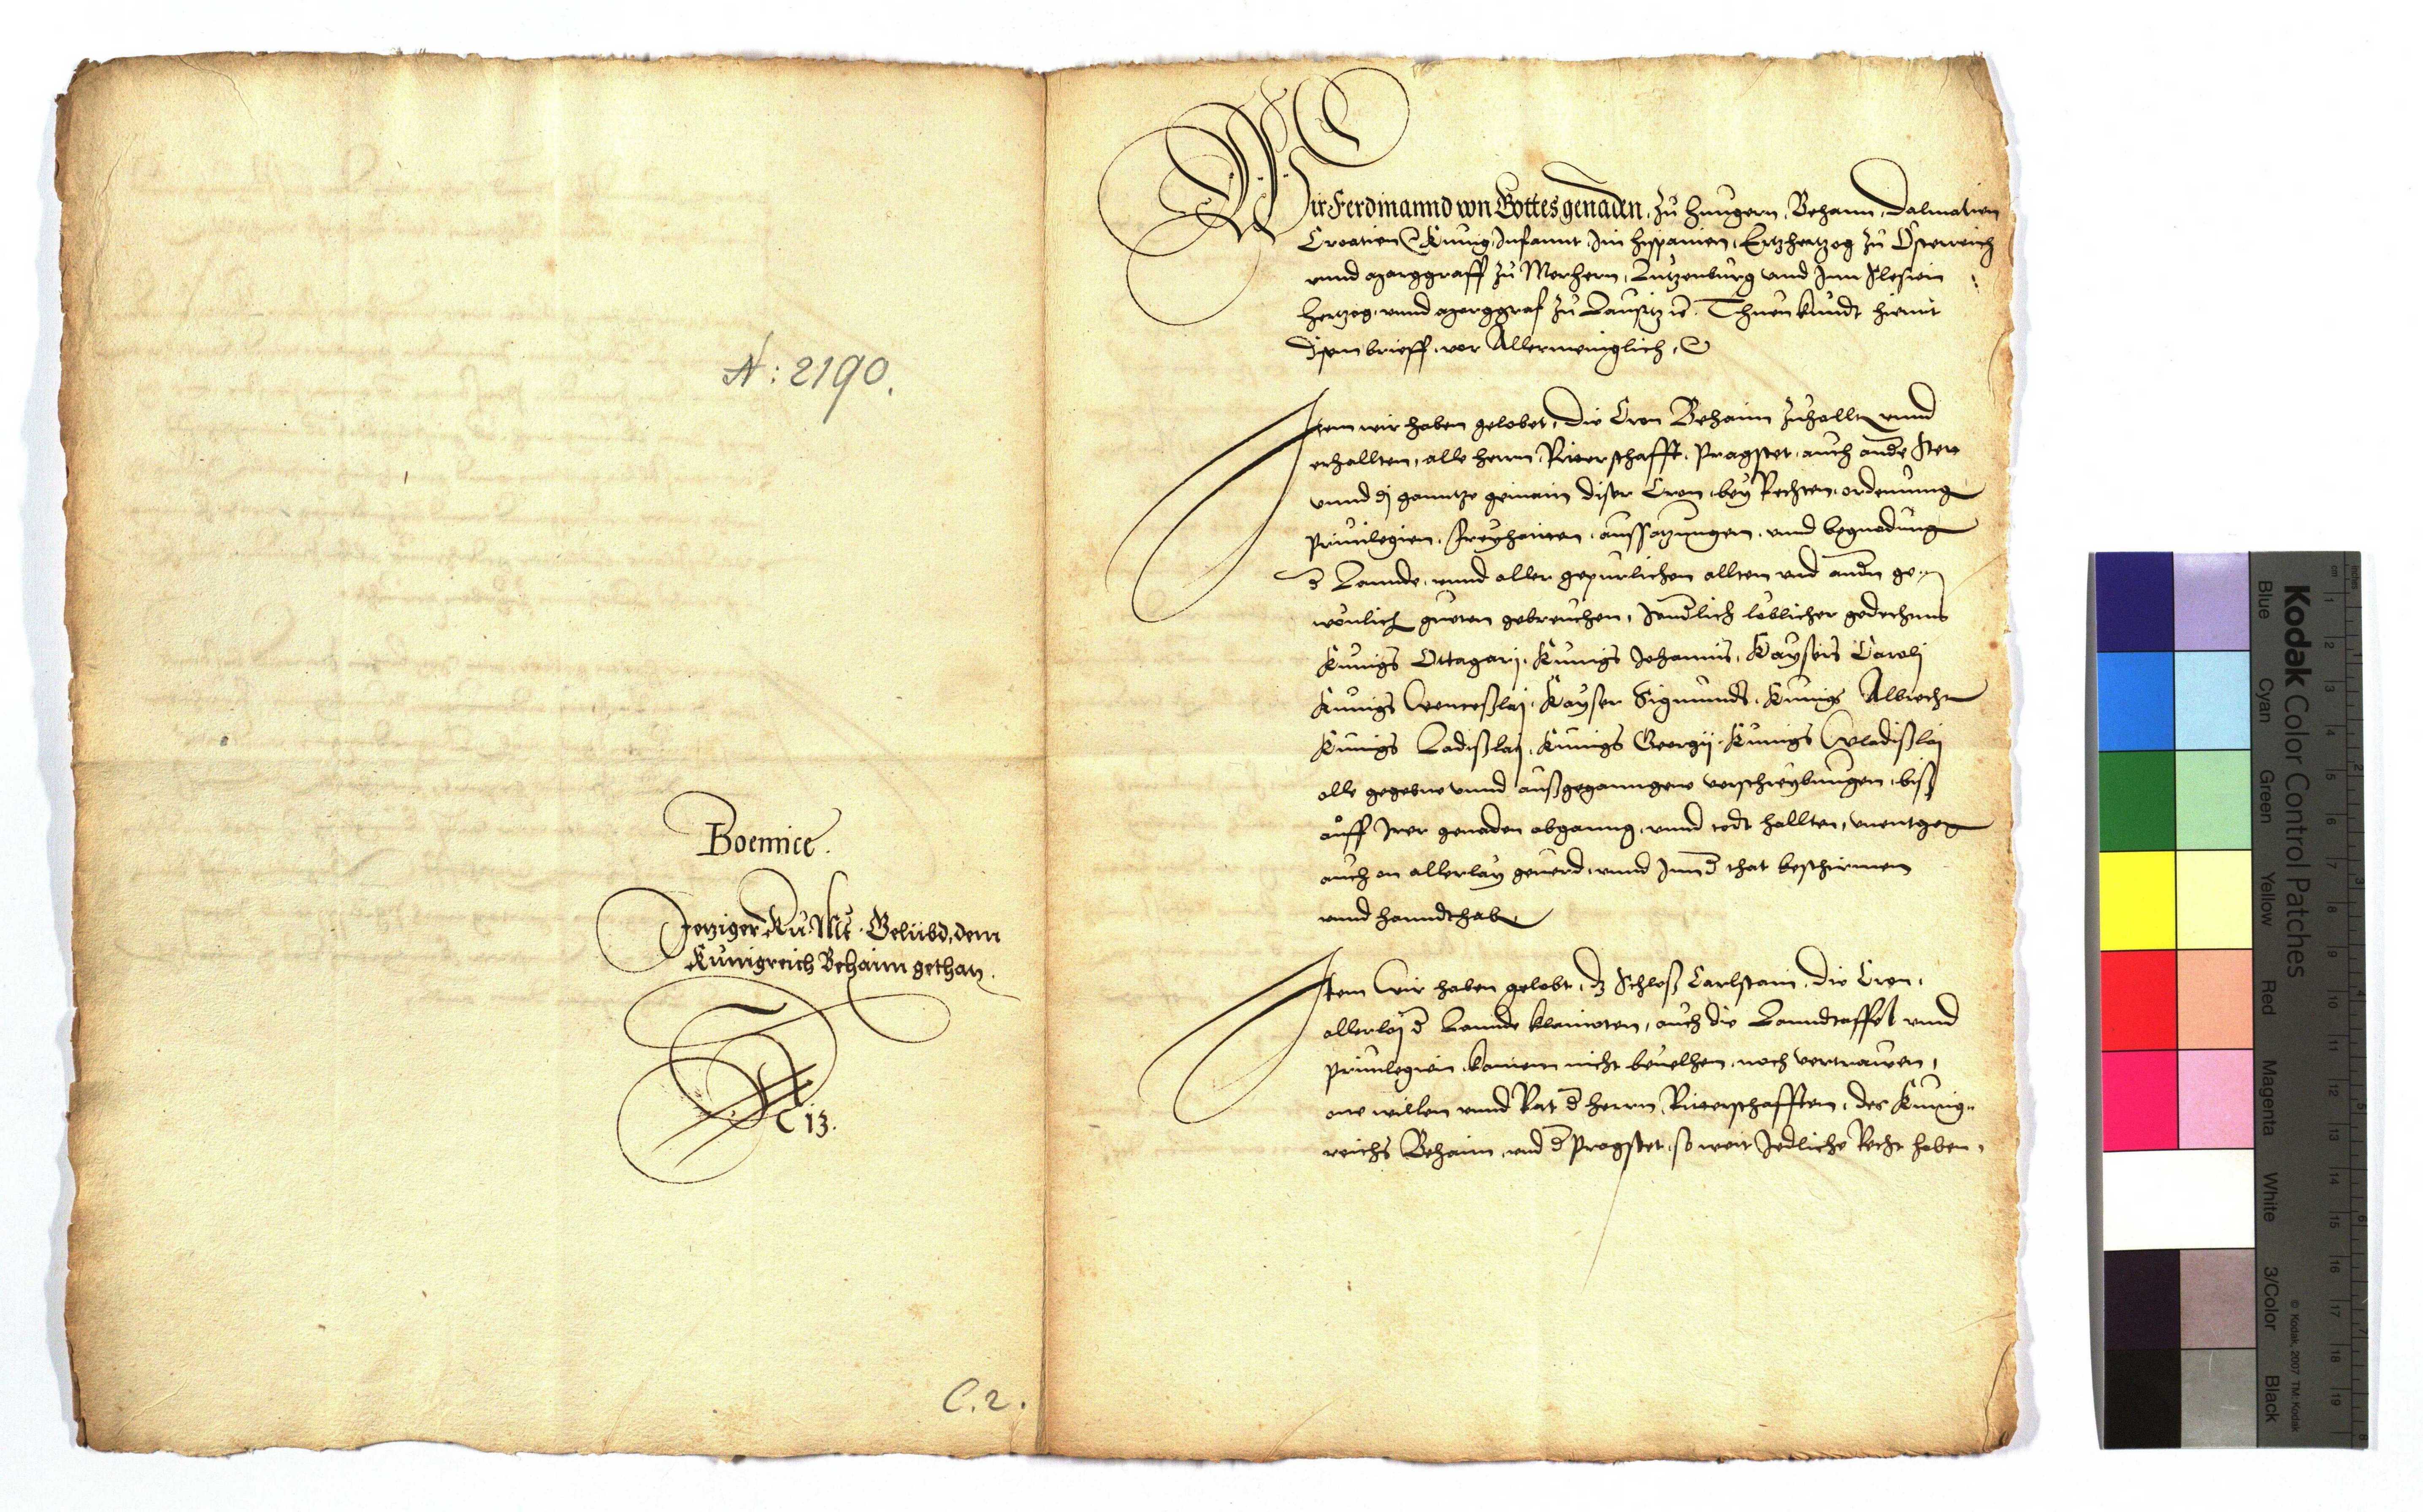 N: 2190.
Boemice.
Jetziger Kü: Mt: Gelübd, dem
Künigreich Behaim gethan.
C 13.
C. 2.
Wir Ferdinannd von Gottes genaden, zů Hungern, Behaim, Dalmatien
Croatien &c Kunig, Infannt Jn Hispanien, Ertzhertzog zů Österreich
vnnd Marggraff zů Merhern, Lutzenburg vnd Jnn Slesien
Hertzog, vnnd Marggraf zů Lausitz &c. Thuen kundt hiemit
disem brieff, vor Allermeniglich, &c
Item wir haben gelobet, die Cron Behaim zuhallten vnnd
erhallten, alle herrn Ritterschafft, Pragstet, auch andere Stet
vnnd di ganntze gemain diser Cron, bey Rechten, ordenung
Priuilegien, Freyhaiten, aussatzungen, vnd begnadung
der Lannde, vnnd aller gepurlichen allten vnd andern ge-
wonlich gueten gebreuchen, Sonderlich loblicher gedechtnus
Kunigs Ottagarj, Kunigs Johannis, Kaysers Carolj
Kunigs Wenceßlaj, Kayser Sigmunds, Kunigs Albrecht
Kunigs Ladißlaj, Kunigs Georgij, Kunigs Wladißlaj
alle gegebne vnnd außgegangene verschreybungen, biß
auff Jrer genaden abganng, vnnd todt hallten,
auch on allerlay geuerd, vnnd Jnn der that beschirmen
vnnd hanndthaben,
Item Wir haben gelobt, dz Schloß Carlstain, die Cron,
allerlaj der Lannde kleinoten, auch die Lanndtaffel vnnd
Priuilegien, kainem nicht beuelhen, noch vertrawen,
one willen vnnd Rat der herrn, Ritterschafften, des Kunig-
reichs Behaim, vnd der Pragstet, so weit Jedliche Recht haben,